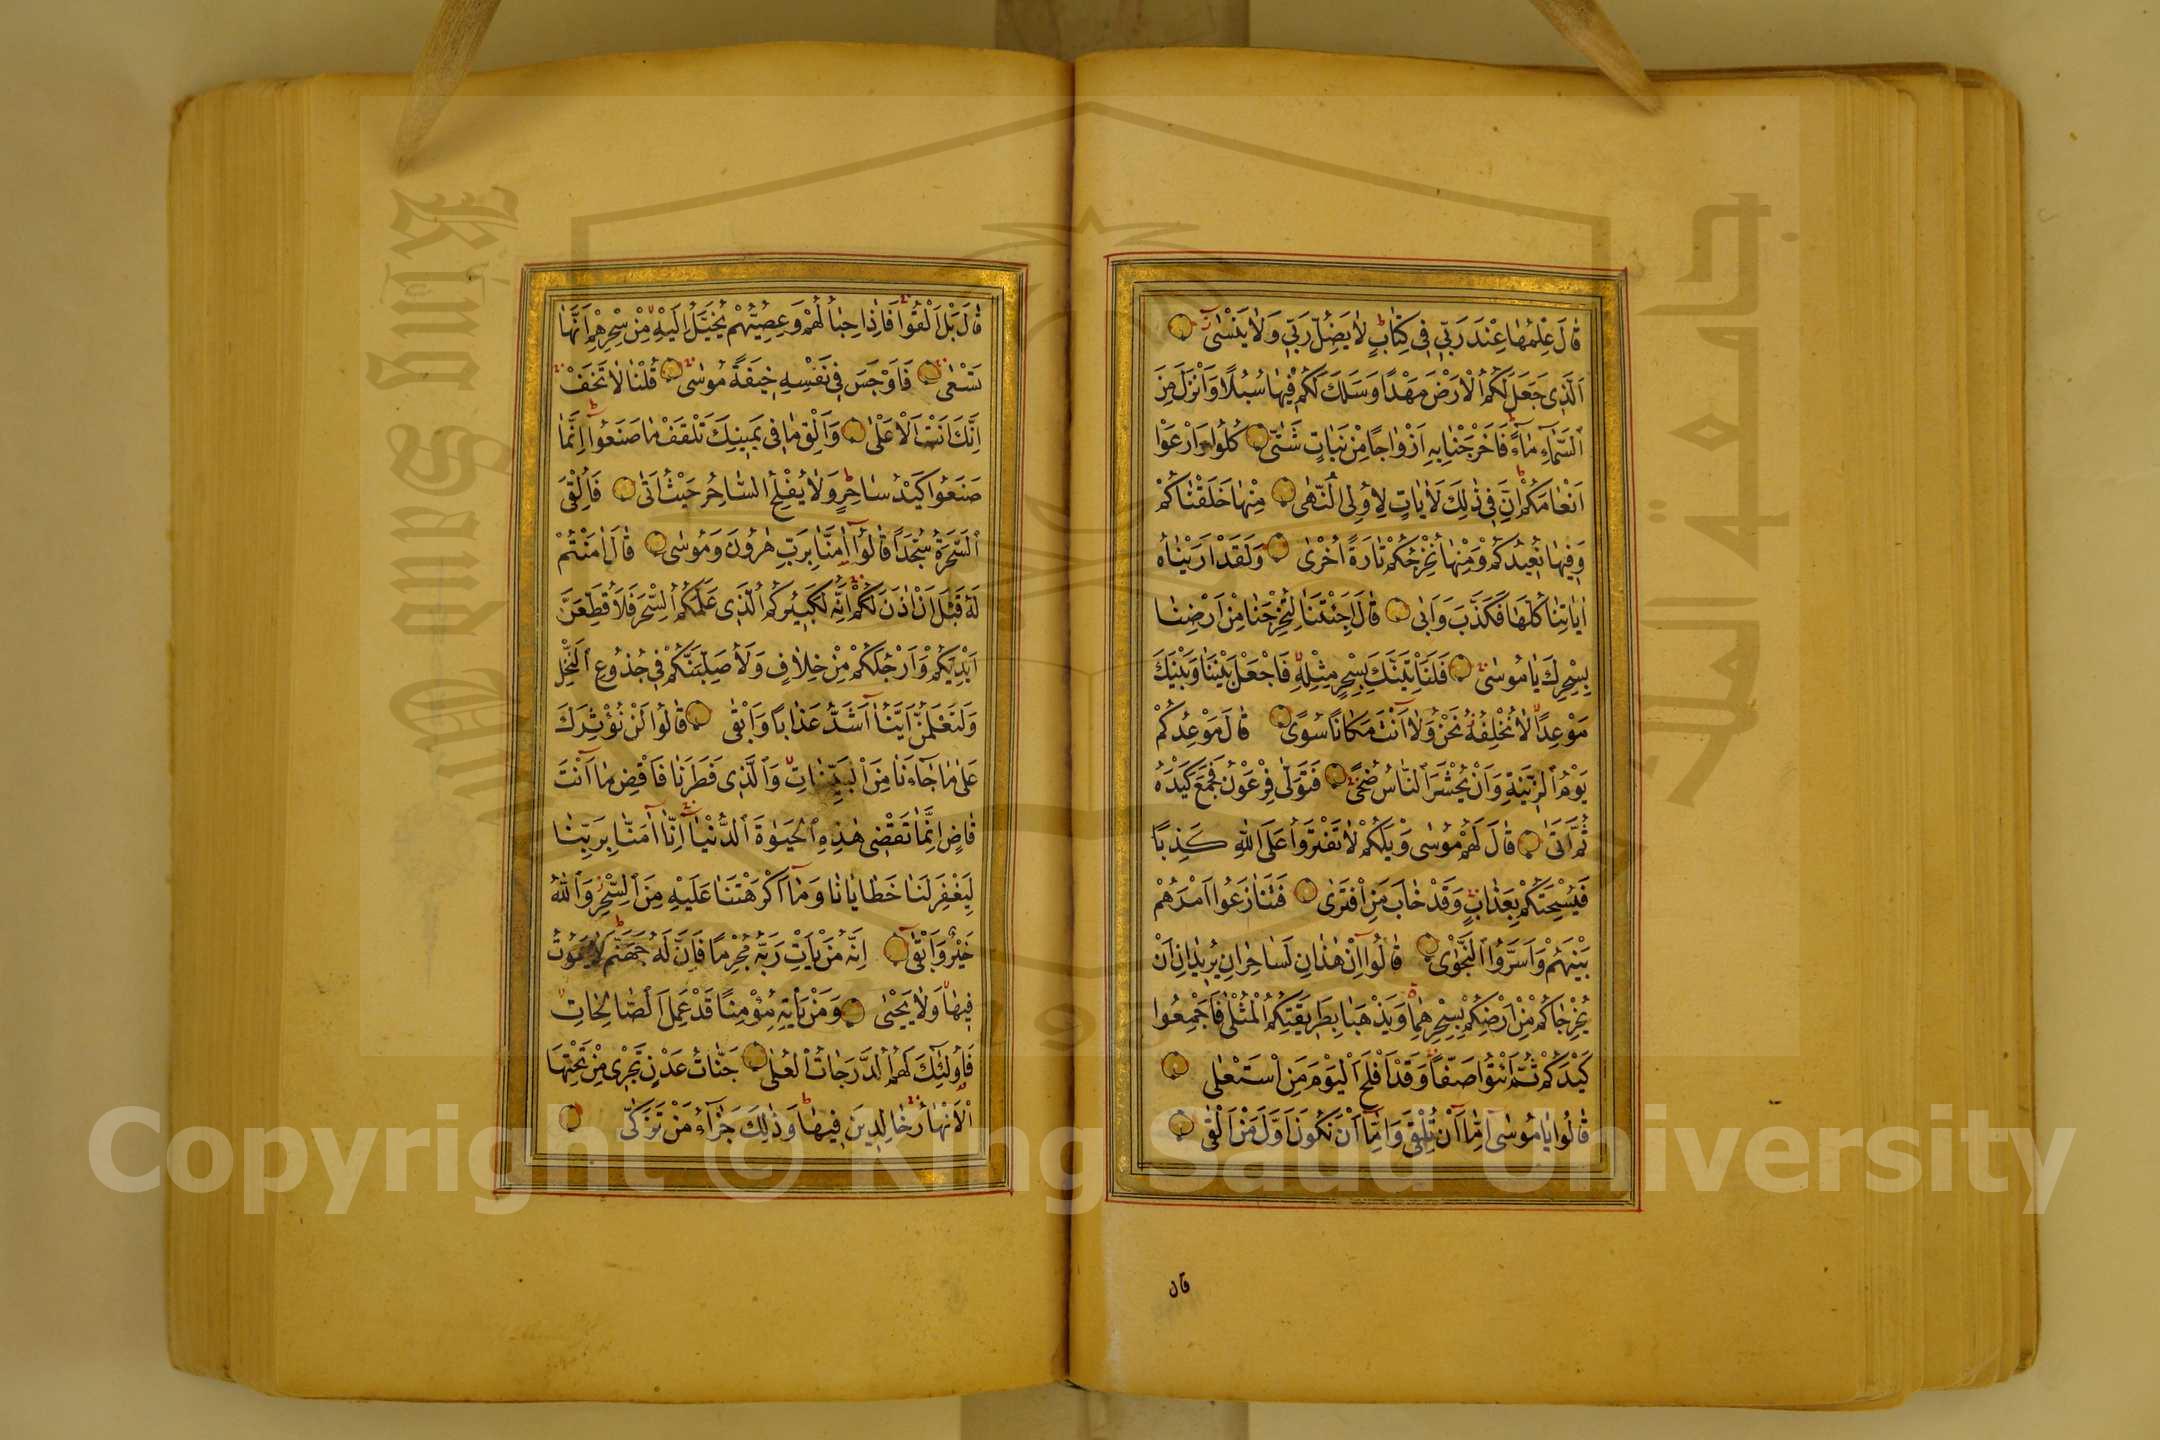 قَالَ عِلْمُهَا عِنْدَ رَبِّي فِي كِتَابٍ لَا يَضِلُّ رَبِّي وَلَا يَنْسٰى
اَلَّذِي جَعَلَ لَكُمُ الْاَرْضَ مَهْدًا وَسَلَكَ لَكُمْ فِيهَا سُبُلًا وَاَنْزَلَ مِنَ
السَّمَآءِ مَآءً فَاَخْرَجْنَا بِهِ اَزْوَاجًا مِنْ نَبَاتٍ شَتّٰى كُلُوا وَارْعَوْا
اَنْعَامَكُمْ اِنَّ فِي ذٰلِكَ لَاٰيَاتٍ لِاُولِي النُّهٰى مِنْهَا خَلَقْنَاكُمْ
وَفِيهَا نُعِيدُكُمْ وَمِنْهَا نُخْرِجُكُمْ تَارَةً اُخْرٰى وَلَقَدْ اَرَيْنَاهُ
اٰيَاتِنَا كُلَّهَا فَكَذَّبَ وَاَبٰى قَالَ اَجِئْتَنَا لِتُخْرِجَنَا مِنْ اَرْضِنَا
بِسِحْرِكَ يَا مُوسٰى فَلَنَأْتِيَنَّكَ بِسِحْرٍ مِثْلِهِ فَاجْعَلْ بَيْنَنَا وَبَيْنَكَ
مَوْعِدًا لَا نُخْلِفُهُ نَحْنُ وَلَا اَنْتَ مَكَانًا سُوًى قَالَ مَوْعِدُكُمْ
يَوْمُ الزِّينَةِ وَاَنْ يُحْشَرَ النَّاسُ ضُحًى فَتَوَلّٰى فِرْعَوْنُ فَجَمَعَ كَيْدَهُ
ثُمَّ اَتٰى قَالَ لَهُمْ مُوسٰى وَيْلَكُمْ لَا تَفْتَرُوا عَلَى اللّٰهِ كَذِبًا
فَيُسْحِتَكُمْ بِعَذَابٍ وَقَدْ خَابَ مَنِ افْتَرٰى فَتَنَازَعُوا اَمْرَهُمْ
بَيْنَهُمْ وَاَسَرُّوا النَّجْوٰى قَالُوا اِنْ هٰذَانِ لَسَاحِرَانِ يُرِيدَانِ اَنْ
يُخْرِجَاكُمْ مِنْ اَرْضِكُمْ بِسِحْرِهِمَا وَيَذْهَبَا بِطَرِيقَتِكُمُ الْمُثْلٰى فَاَجْمِعُوا
كَيْدَكُمْ ثُمَّ ائْتُوا صَفًّا وَقَدْ اَفْلَحَ الْيَوْمَ مَنِ اسْتَعْلٰى
قَالُوا يَا مُوسٰى اِمَّا اَنْ تُلْقِيَ وَاِمَّا اَنْ نَكُونَ اَوَّلَ مَنْ اَلْقٰى
قال
قَالَ بَلْ اَلْقُوا فَاِذَا حِبَالُهُمْ وَعِصِيُّهُمْ يُخَيَّلُ اِلَيْهِ مِنْ سِحْرِهِمْ اَنَّهَا
تَسْعٰى فَاَوْجَسَ فِي نَفْسِهِ خِيفَةً مُوسٰى قُلْنَا لَا تَخَفْ
اِنَّكَ اَنْتَ الْاَعْلٰى وَاَلْقِ مَا فِي يَمِينِكَ تَلْقَفْ مَا صَنَعُوا اِنَّمَا
صَنَعُوا كَيْدُ سَاحِرٍ وَلَا يُفْلِحُ السَّاحِرُ حَيْثُ اَتٰى فَاُلْقِيَ
السَّحَرَةُ سُجَّدًا قَالُوا اٰمَنَّا بِرَبِّ هٰرُونَ وَمُوسٰى قَالَ اٰمَنْتُمْ
لَهُ قَبْلَ اَنْ اٰذَنَ لَكُمْ اِنَّهُ لَكَبِيرُكُمُ الَّذِي عَلَّمَكُمُ السِّحْرَ فَلَاُقَطِّعَنَّ
اَيْدِيَكُمْ وَاَرْجُلَكُمْ مِنْ خِلَافٍ وَلَاُصَلِّبَنَّكُمْ فِي جُذُوعِ النَّخْلِ
وَلَتَعْلَمُنَّ اَيُّنَا اَشَدُّ عَذَابًا وَاَبْقٰى قَالُوا لَنْ نُؤْثِرَكَ
عَلٰى مَا جَاءَنَا مِنَ الْبَيِّنَاتِ وَالَّذِي فَطَرَنَا فَاقْضِ مَا اَنْتَ
قَاضٍ اِنَّمَا تَقْضِي هٰذِهِ الْحَيٰوةَ الدُّنْيَا اِنَّا اٰمَنَّا بِرَبِّنَا
لِيَغْفِرَ لَنَا خَطَايَانَا وَمَا اَكْرَهْتَنَا عَلَيْهِ مِنَ السِّحْرِ وَاللّٰهُ
خَيْرٌ وَاَبْقٰى اِنَّهُ مَنْ يَأْتِ رَبَّهُ مُجْرِمًا فَاِنَّ لَهُ جَهَنَّمَ لَا يَمُوتُ
فِيهَا وَلَا يَحْيٰى وَمَنْ يَأْتِهِ مُؤْمِنًا قَدْ عَمِلَ الصَّالِحَاتِ
فَاُولٰئِكَ لَهُمُ الدَّرَجَاتُ الْعُلٰى جَنَّاتُ عَدْنٍ تَجْرِي مِنْ تَحْتِهَا
الْاَنْهَارُ خَالِدِينَ فِيهَا وَذٰلِكَ جَزَآءُ مَنْ تَزَكّٰى
King Saud University
جامعة الملك
1957
Copyright © King Saud University